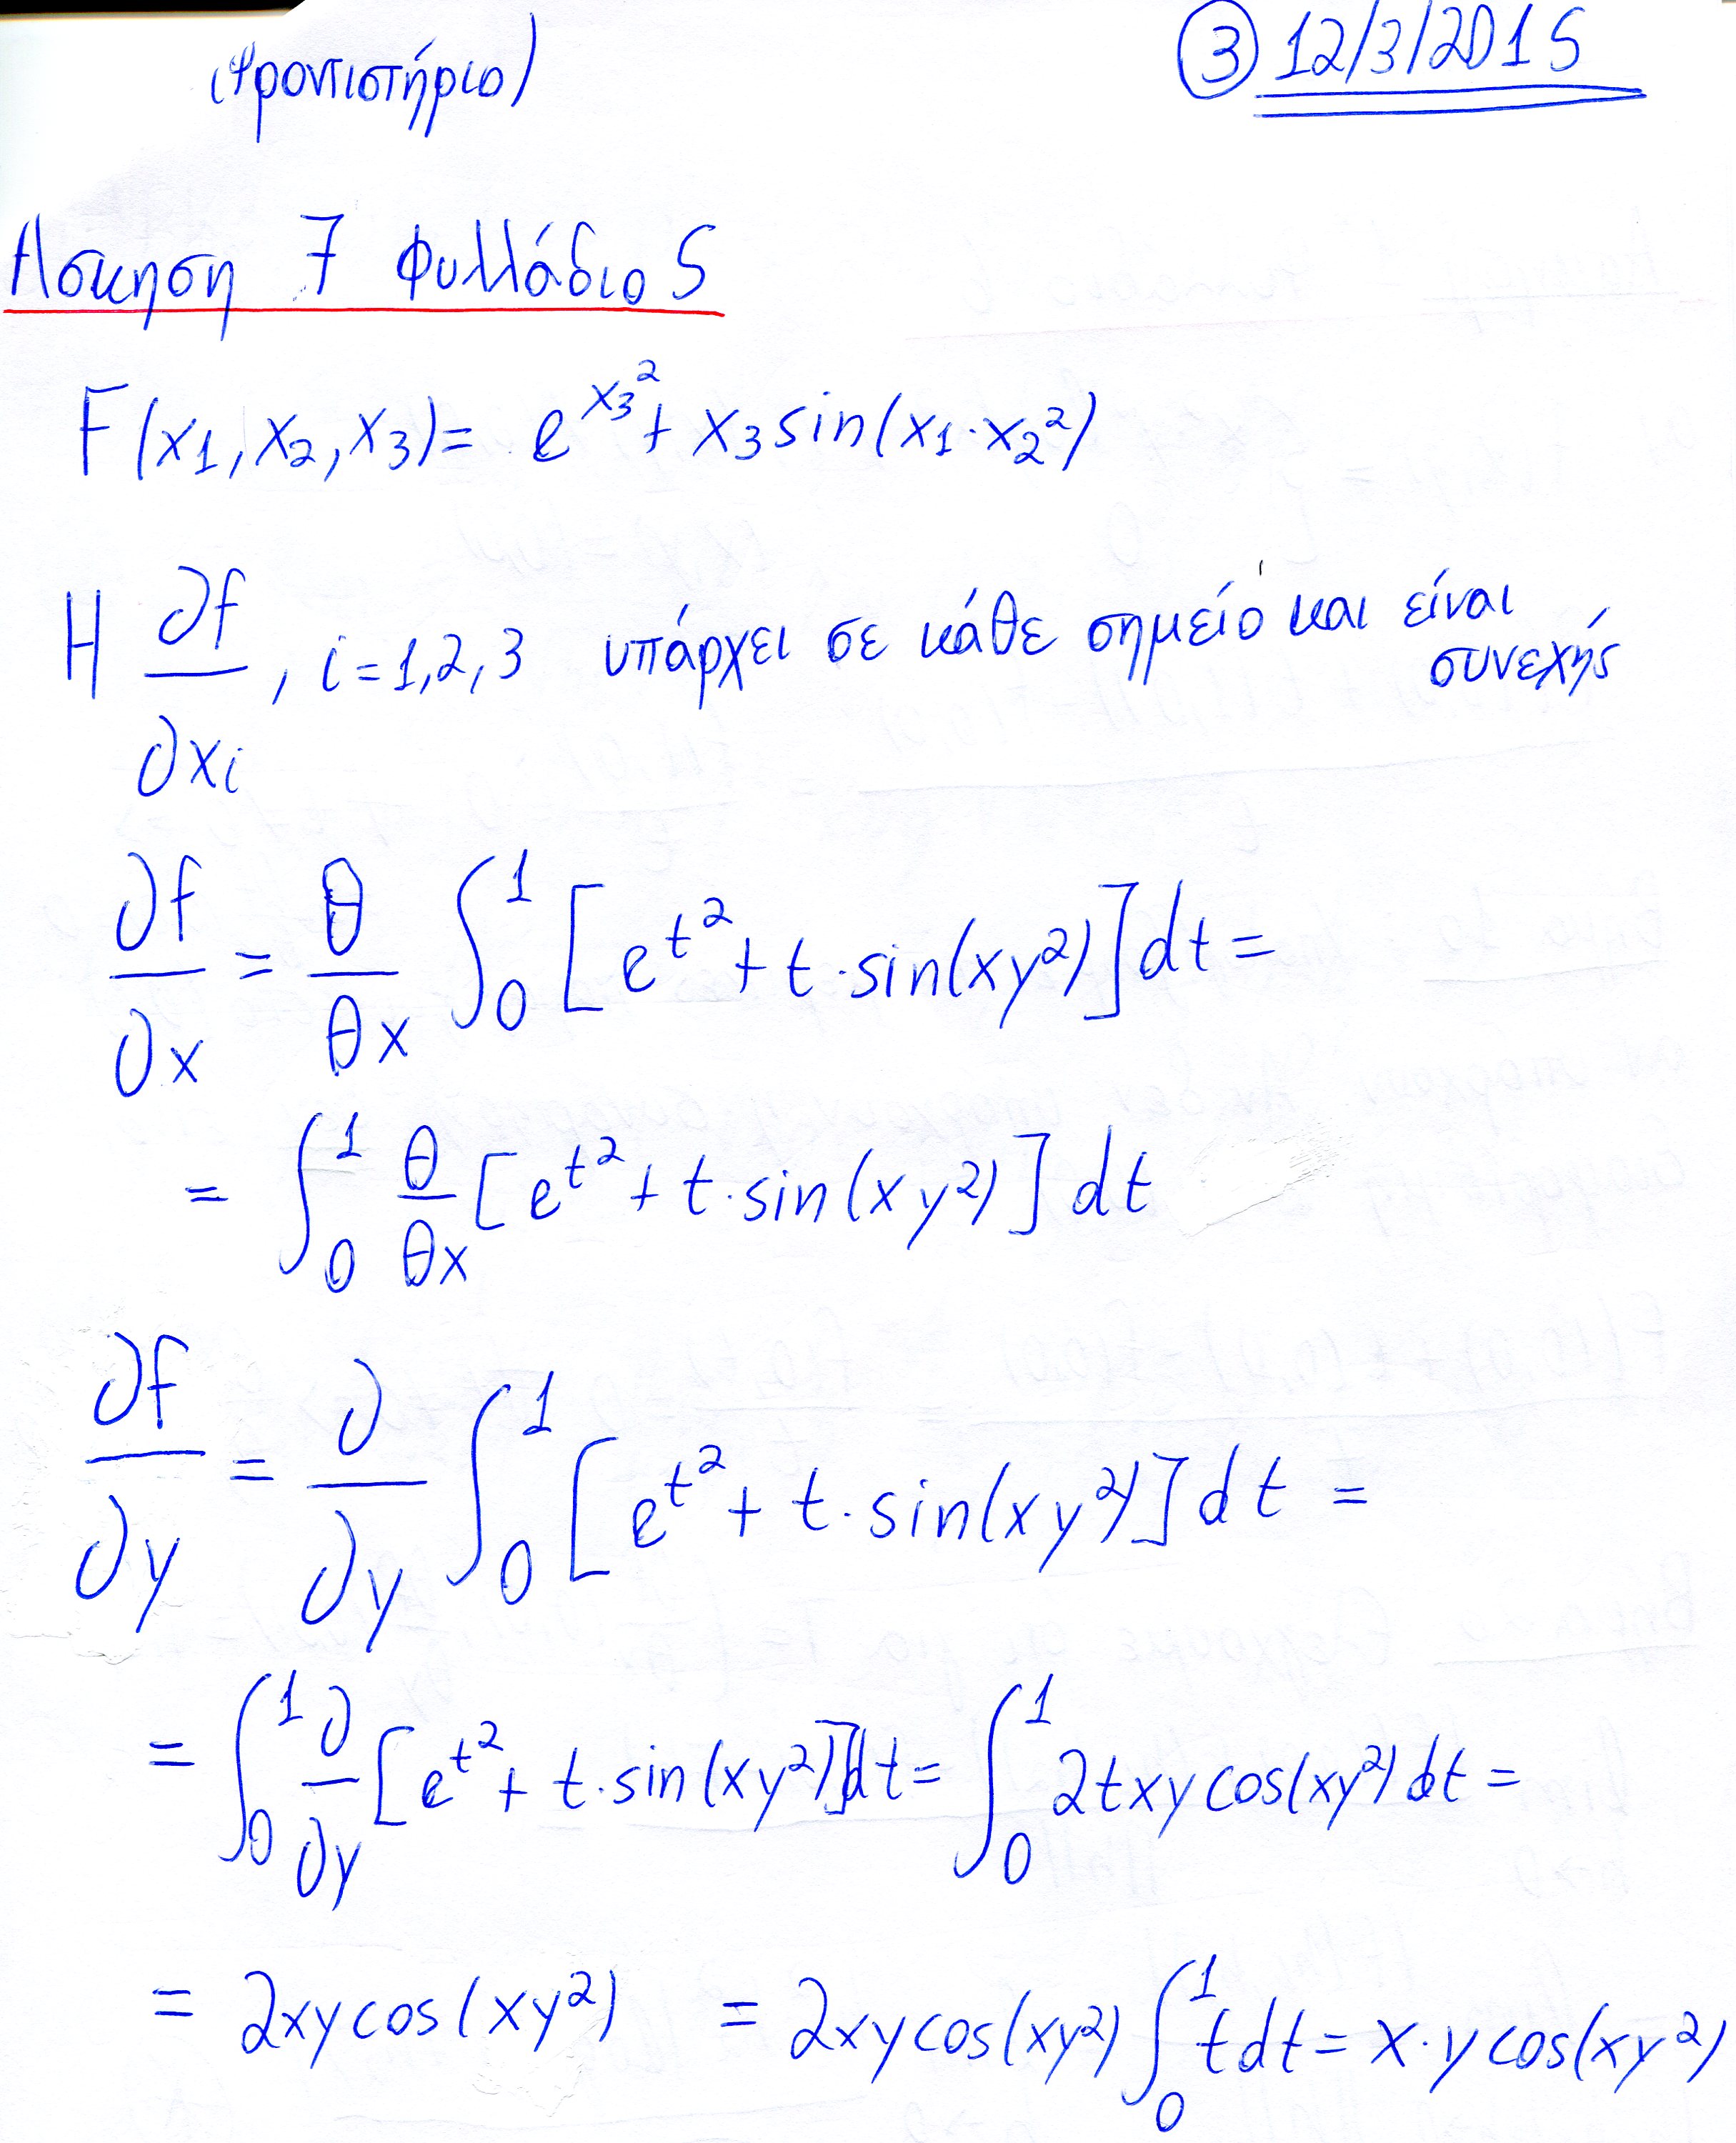 (Φροντιστήριο) ③ 12/3/2015
Άσκηση 7 Φυλλάδιο 5
F(x₁, x₂, x₃) = e^{x₃²} + x₃ sin(x₁·x₂²)
Η ∂f/∂xi, i = 1,2,3 υπάρχει σε κάθε σημείο και είναι συνεχής
∂f/∂x = θ/θx ∫₀¹ [e^{t²} + t·sin(xy²)] dt =
= ∫₀¹ θ/θx [e^{t²} + t·sin(xy²)] dt
∂f/∂y = ∂/∂y ∫₀¹ [e^{t²} + t·sin(xy²)] dt =
= ∫₀¹ ∂/∂y [e^{t²} + t·sin(xy²)] dt = ∫₀¹ 2txy cos(xy²) dt =
= 2xy cos(xy²) = 2xy cos(xy²) ∫₀¹ t dt = x·y cos(xy²)